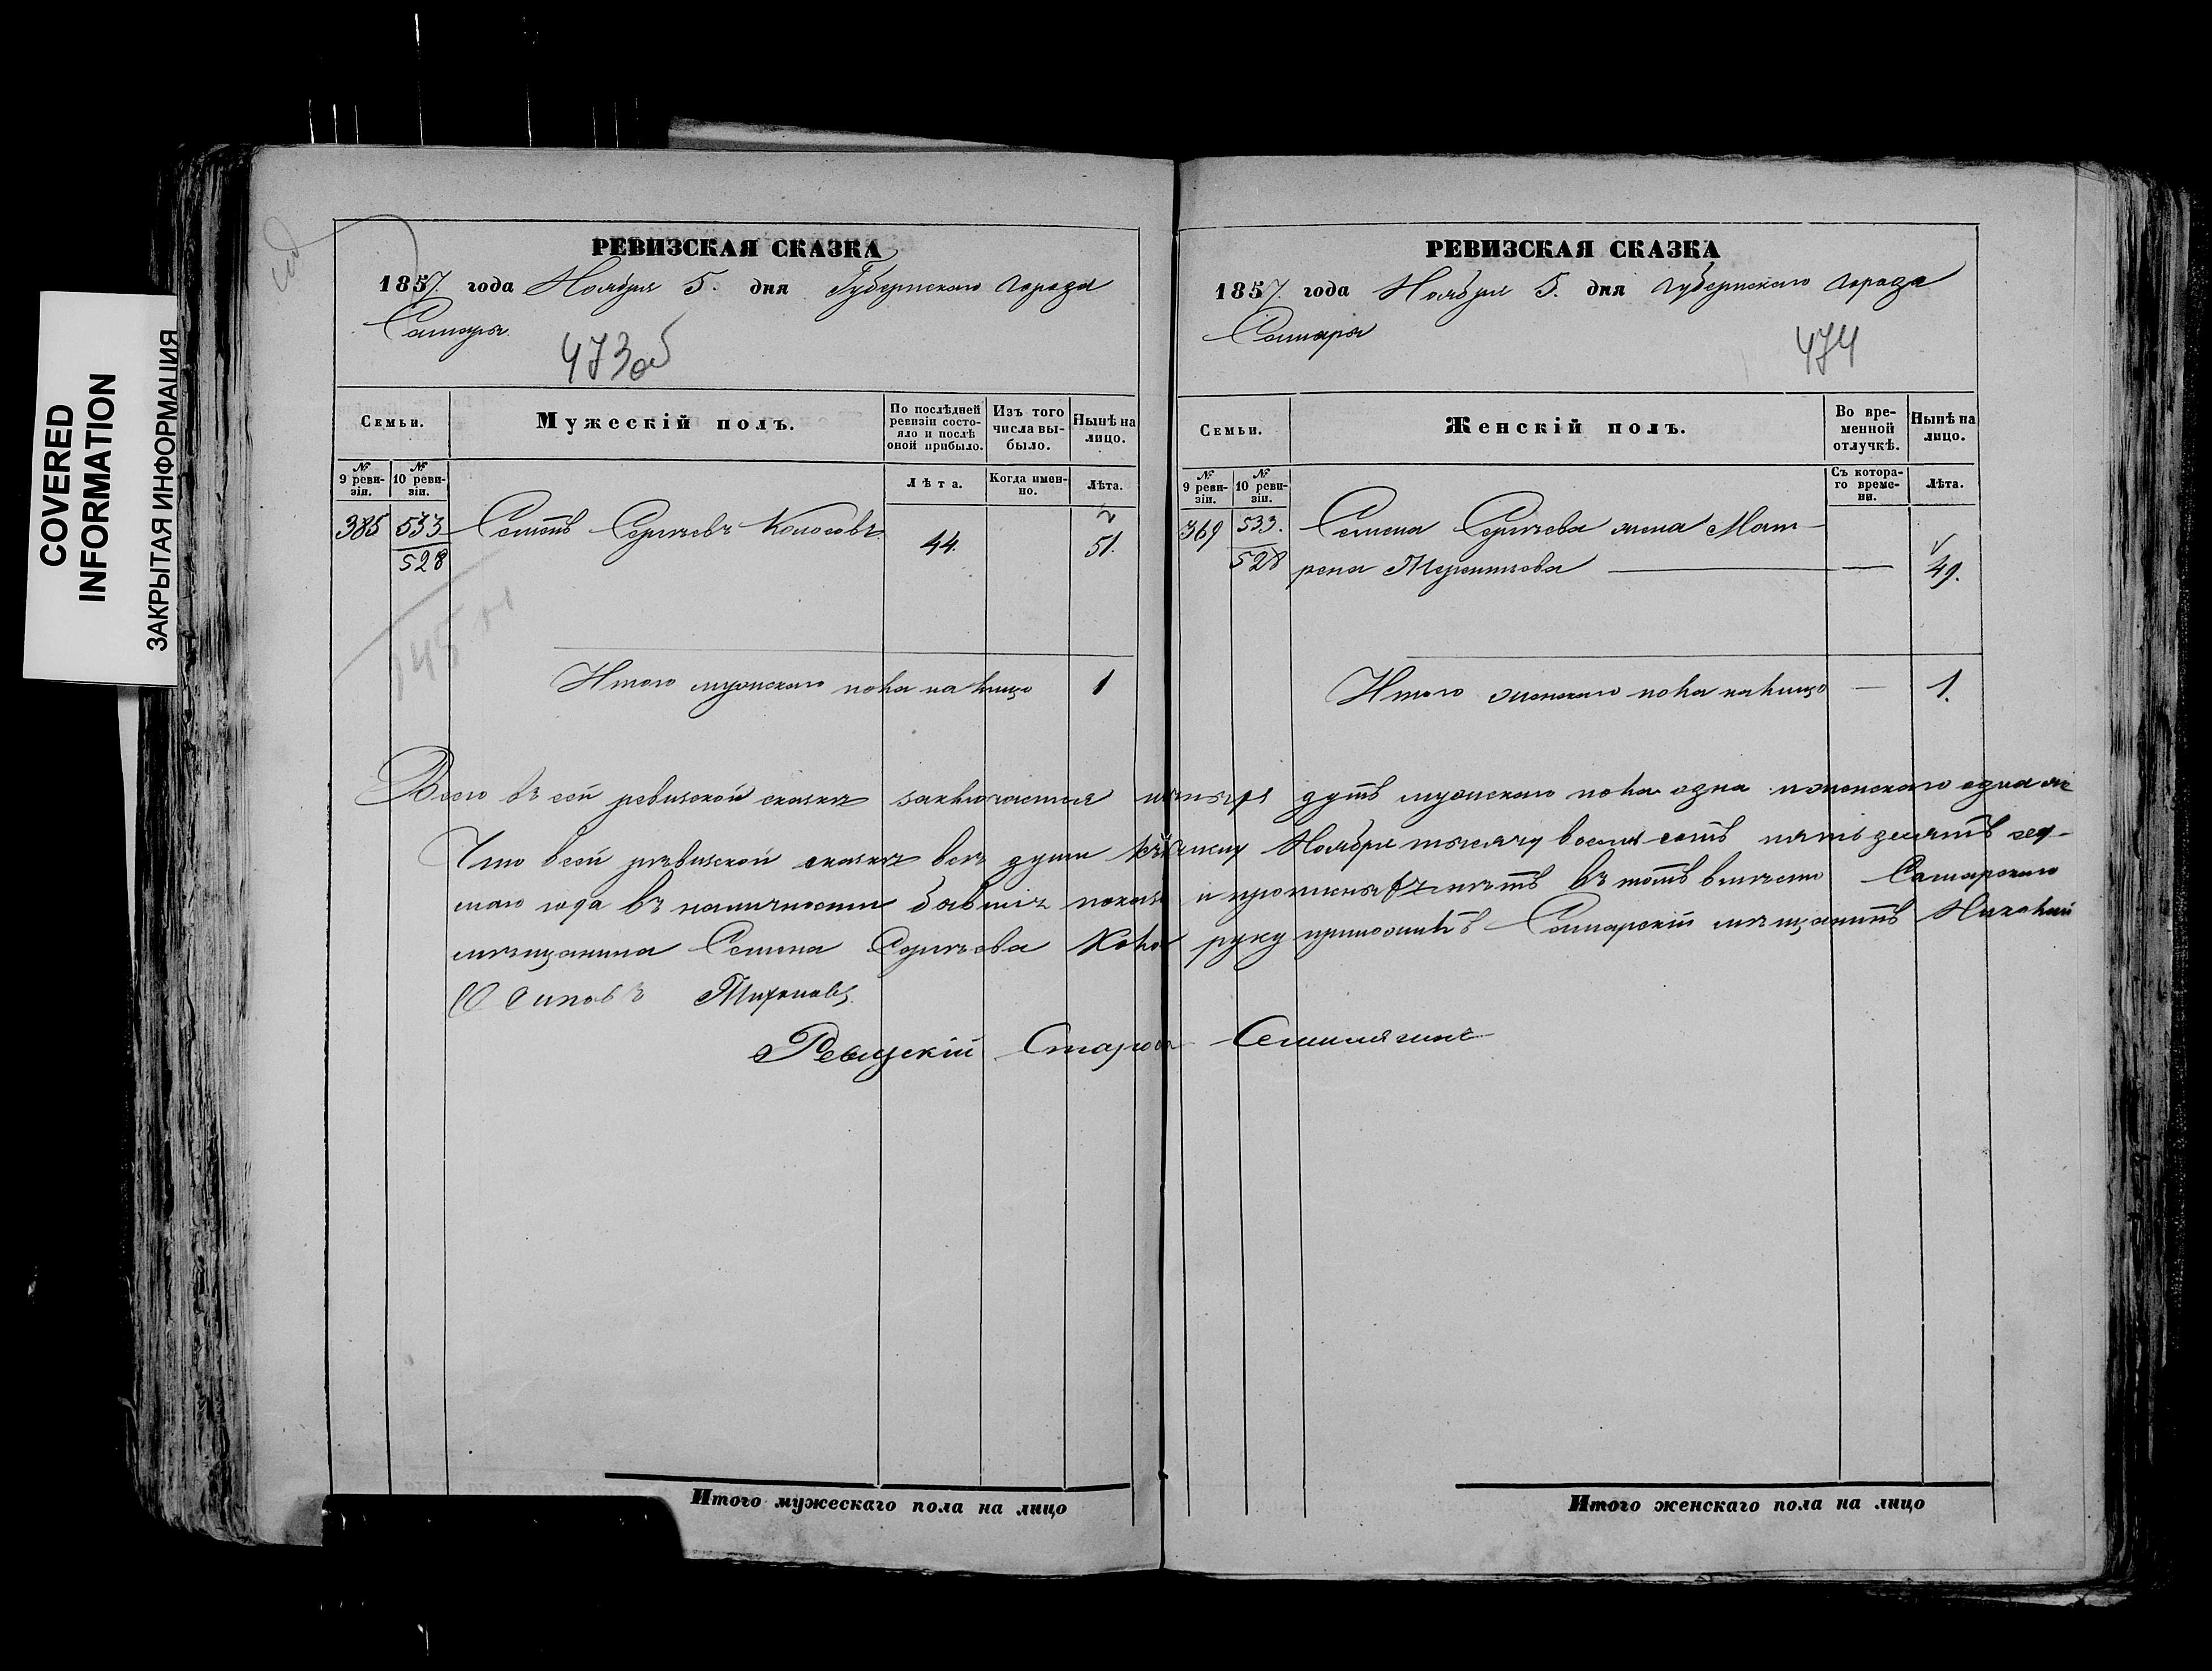 COVERED
INFORMATION
ЗАКРЫТАЯ ИНФОРМАЦИЯ
РЕВИЗСКАЯ СКАЗКА
1857. года Ноября 5. дня Губернскаго города
Самары.
473об
Семьи.
Мужескій полъ.
По послѣдней ревизіи состояло и послѣ оной прибыло.
Изъ того числа выбыло.
Нынѣ на лицо.
№ 9 ревизіи.
№ 10 ревизіи.
Лѣта.
Когда именно.
Лѣта.
385 533 Семенъ Сергѣевъ Колосовъ 44. 51.
528
145
Итого мужскаго пола на лицо 1
РЕВИЗСКАЯ СКАЗКА
1857. года Ноября 5. дня Губернскаго города
Самары
474
Семьи.
Женскій полъ.
Во временной отлучкѣ.
Нынѣ на лицо.
№ 9 ревизіи.
№ 10 ревизіи.
Съ котораго времени.
Лѣта.
369 533. Семена Сергѣева жена Мат-
528 рена Терентьева — — 49.
Итого женскаго пола на лицо — 1.
Всего въ сей ревизской сказкѣ заключается душъ мужскаго пола одна и женскаго одна же
Что в сей ревизской сказкѣ всѣ души Ноября тысячу восемь сотъ пятьдесятъ сед-
маго года въ наличности бывшіе и пропискы нѣтъ въ томъ вмѣсто Самарскаго
мѣщанина Семена Сергѣева руку приложилъ Самарскій мѣщанинъ Николай
Осиповъ Тихоновъ
Ревизскій Староста
Итого мужескаго пола на лицо
Итого женскаго пола на лицо